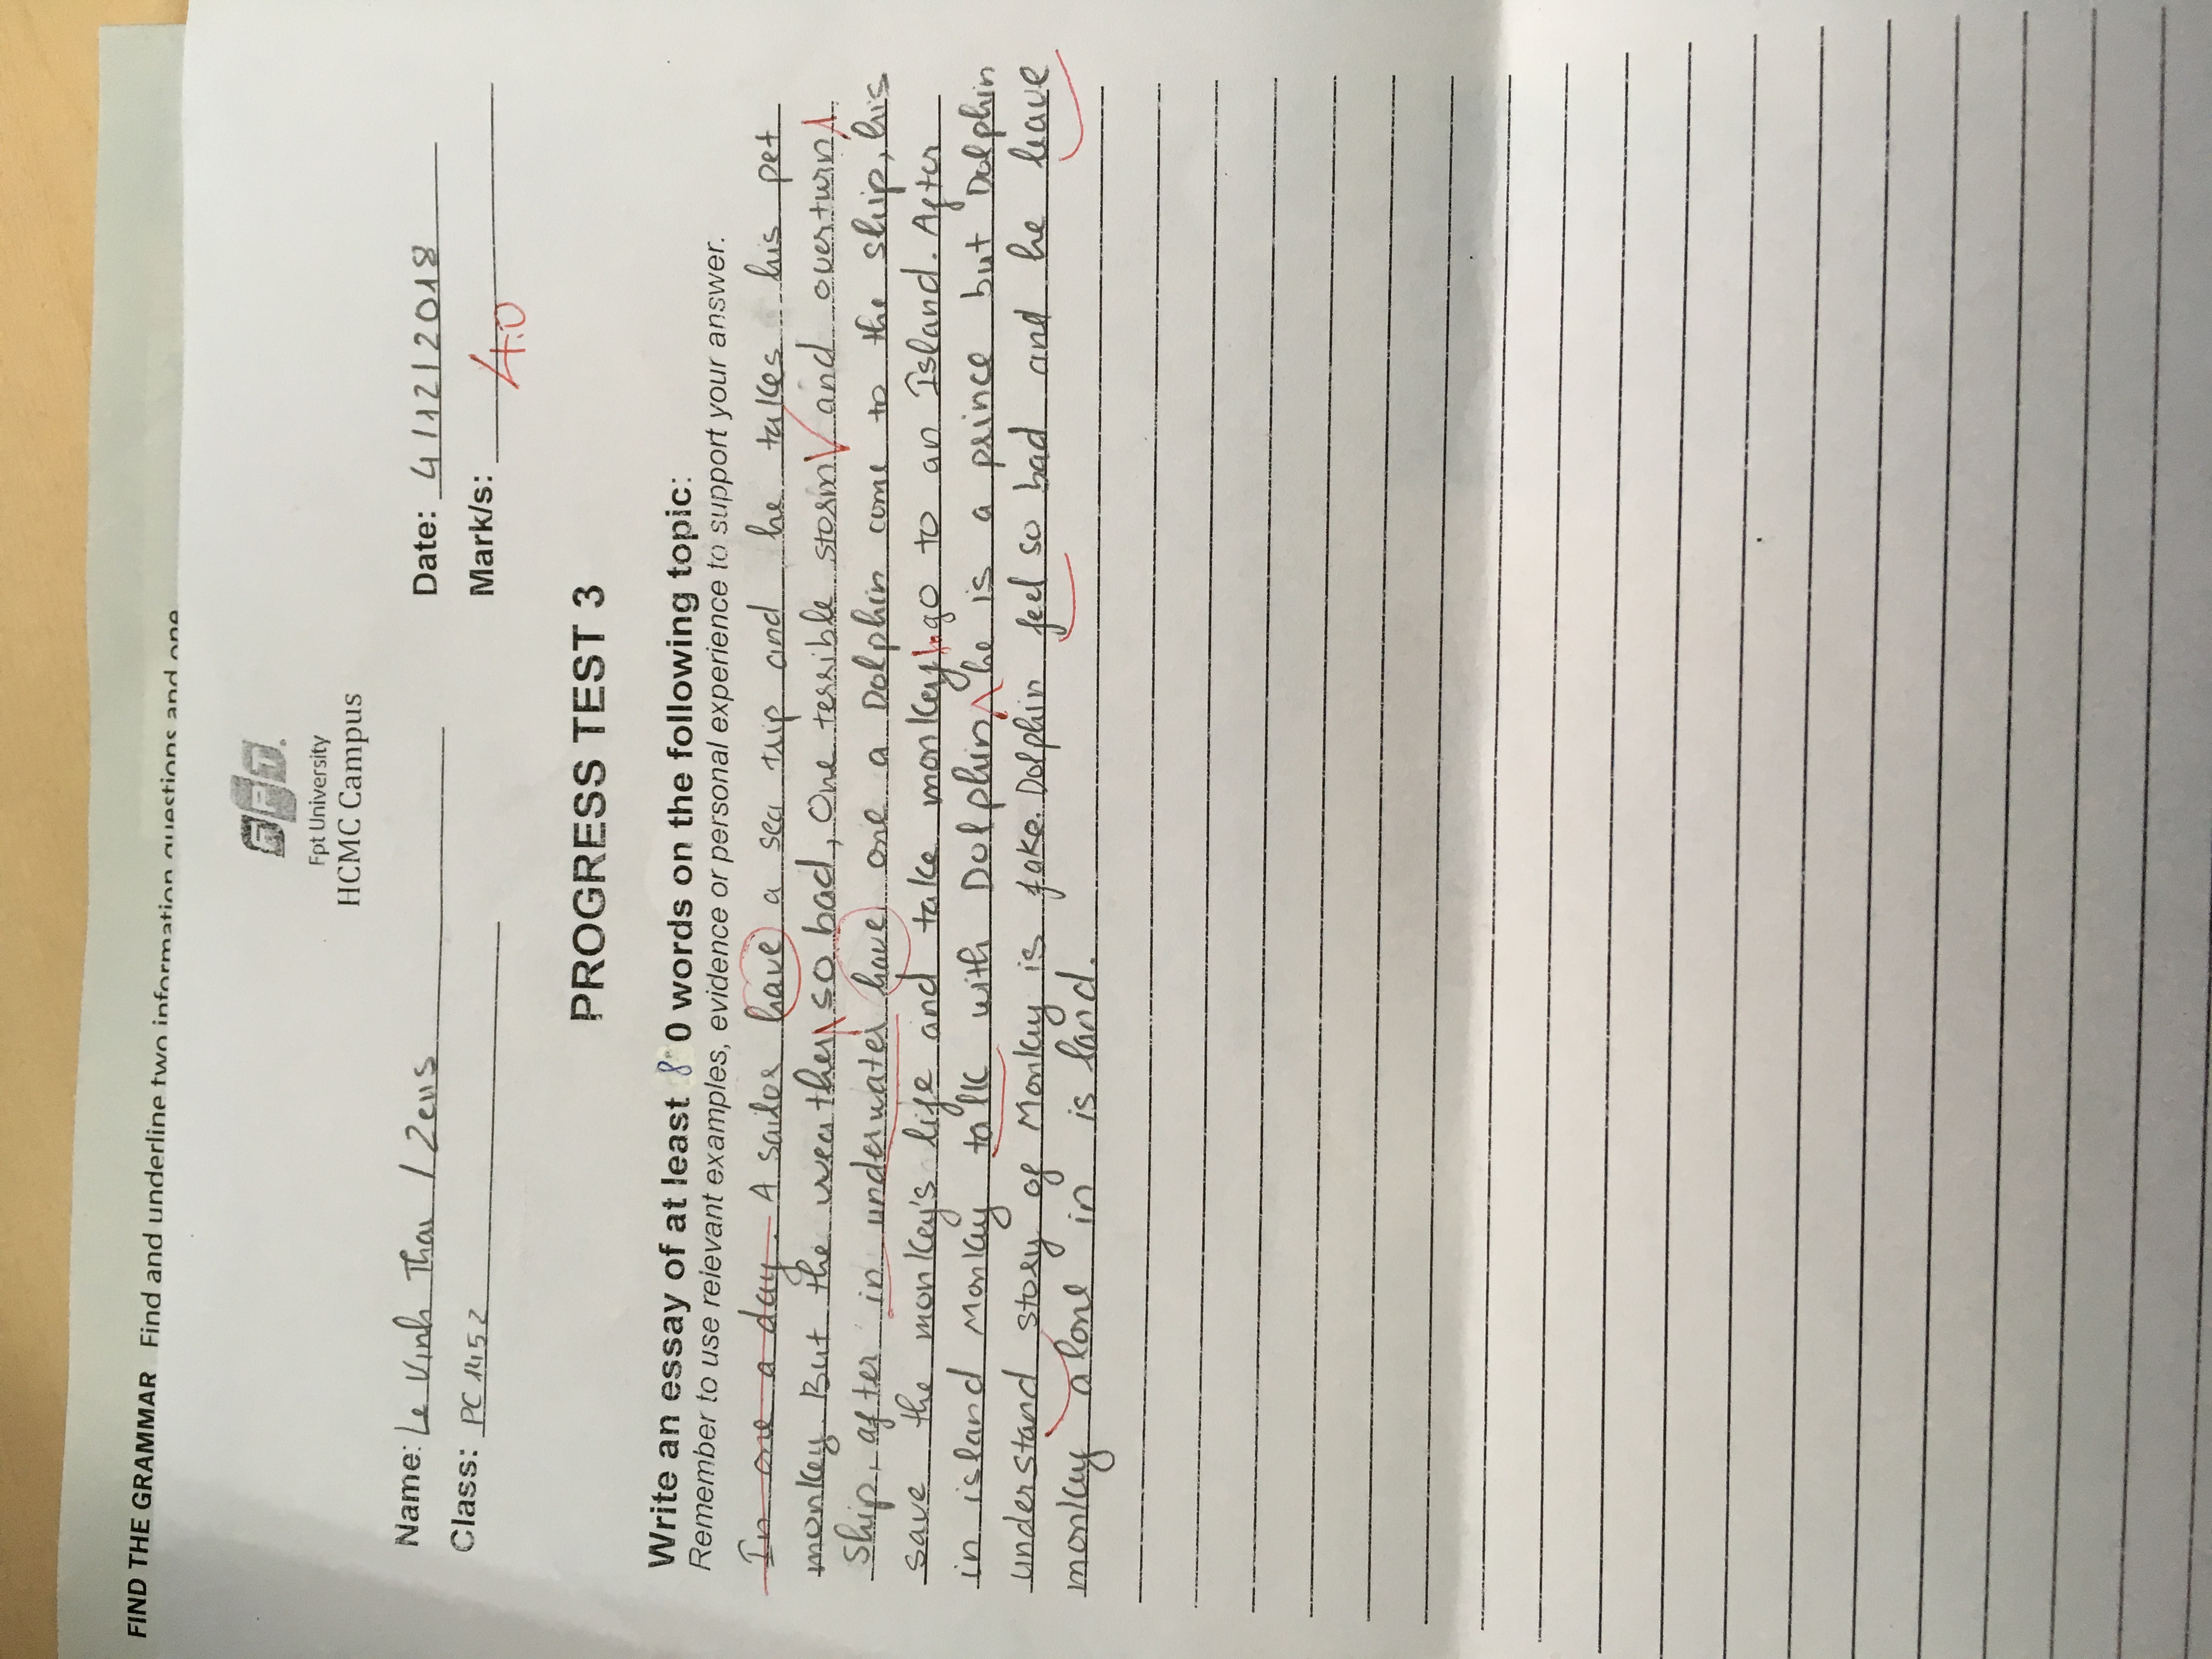 FIND THE GRAMMAR Find and underline two information questions and one
FPT.
Fpt University
HCMC Campus
Name: Le Vinh Thai / Zeus
Date: 4/12/2018
Class: PC 1452
Mark/s: 4.0
PROGRESS TEST 3
Write an essay of at least 80 words on the following topic:
Remember to use relevant examples, evidence or personal experience to support your answer.
In one a day. A sailor have a sea trip and he takes his pet
monkey. But the weather so bad, One terrible storm and overturn
ship, after in underwater have one a Dolphin come to the ship, his
save the monkey's life and take monkey to go to an Island. After
in island Monkey talk with Dolphin he is a prince but Dolphin
understand story of Monkey is fake. Dolphin feel so bad and he leave
monkey alone in is land.